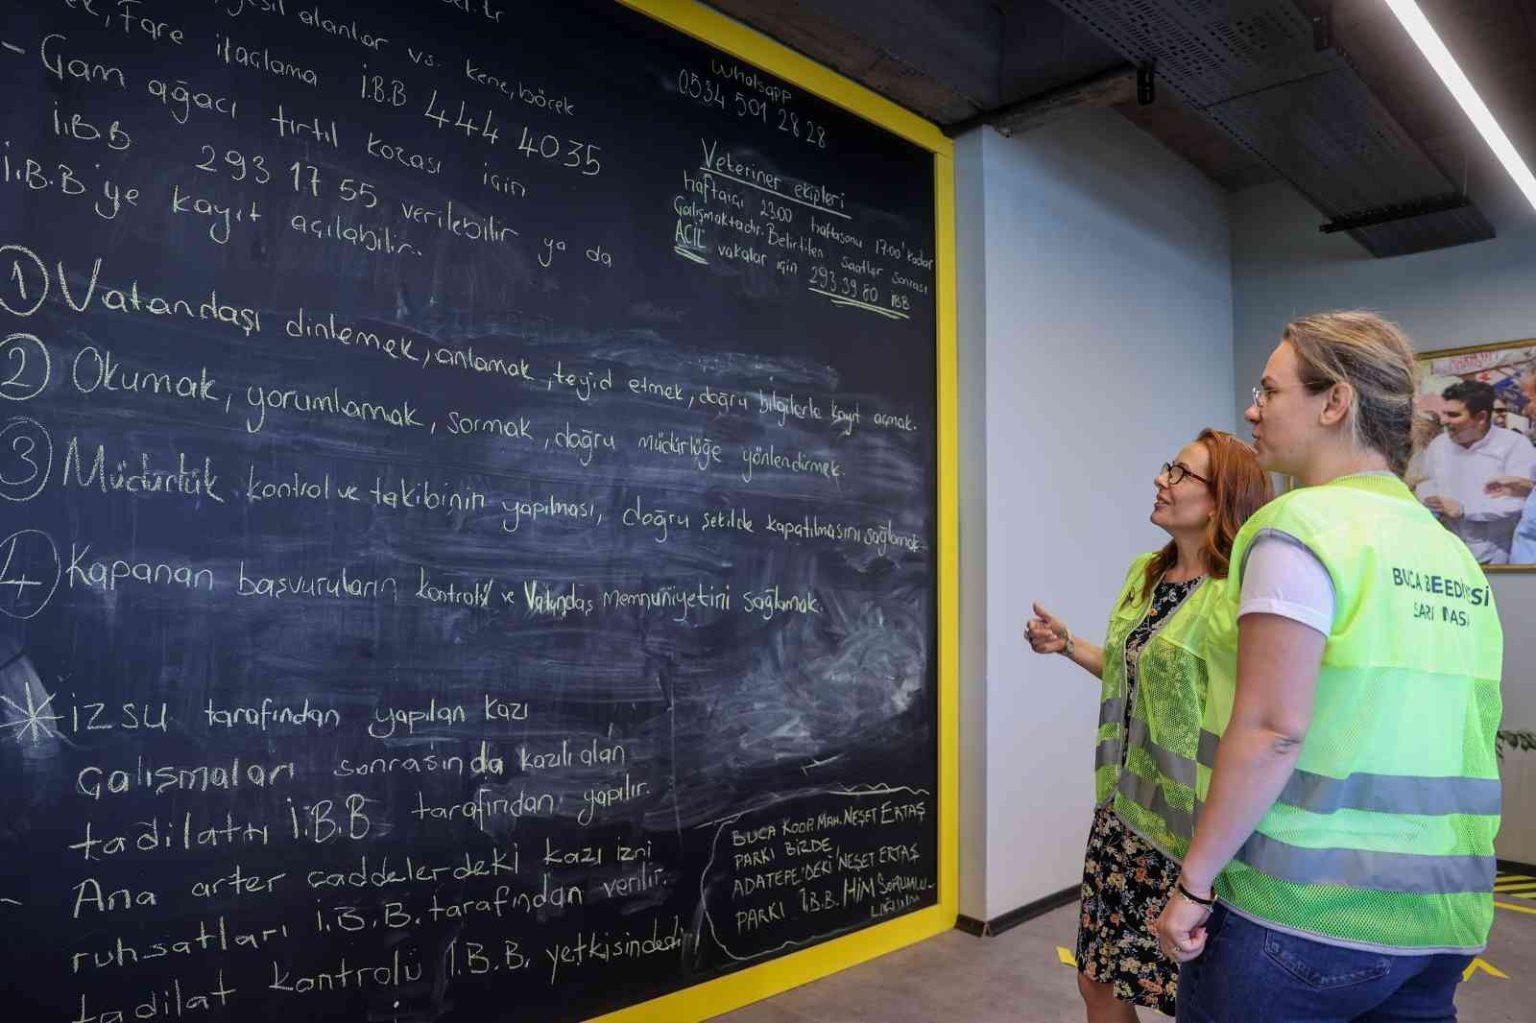 yeşil alanlar vs. kene, böcek
Fare ilaçlama İ.B.B 444 4035
- Çam ağacı tırtıl kozası için
İ.B.B 293 17 55 verilebilir ya da
İ.B.B'ye kayıt açılabilir..
1 Vatandaşı dinlemek, anlamak, teyid etmek, doğru bilgilerle kayıt açmak.
2 Okumak, yorumlamak, sormak, doğru müdürlüğe yönlendirmek.
3 Müdürlük kontrol ve takibinin yapılması, doğru şekilde kapatılmasını sağlamak
4 Kapanan başvuruların kontrolü ve Vatandaş Memnuniyetini sağlamak.
İZSU tarafından yapılan kazı
çalışmaları sonrasında kazılı alan
tadilatı İ.B.B tarafından yapılır.
- Ana arter caddelerdeki kazı izni
ruhsatları İ.B.B. tarafından verilir.
tadilat kontrolü İ.B.B. yetkisindedir
Whatsapp
0534 501 28 28
Veteriner ekipleri
Haftaiçi 23.00 haftasonu 17:00'kadar
Çalışmaktadır. Belirtilen saatler sonrası
ACİL vakalar için 293 39 80 İBB
BUCA KOOP. MAH. NEŞET ERTAŞ
PARKI BİZDE,
ADATEPE'DEKİ NEŞET ERTAŞ
PARKI İ.B.B. HİM SORUMLU-
BUCA BELEDİYESİ
SARI MASA